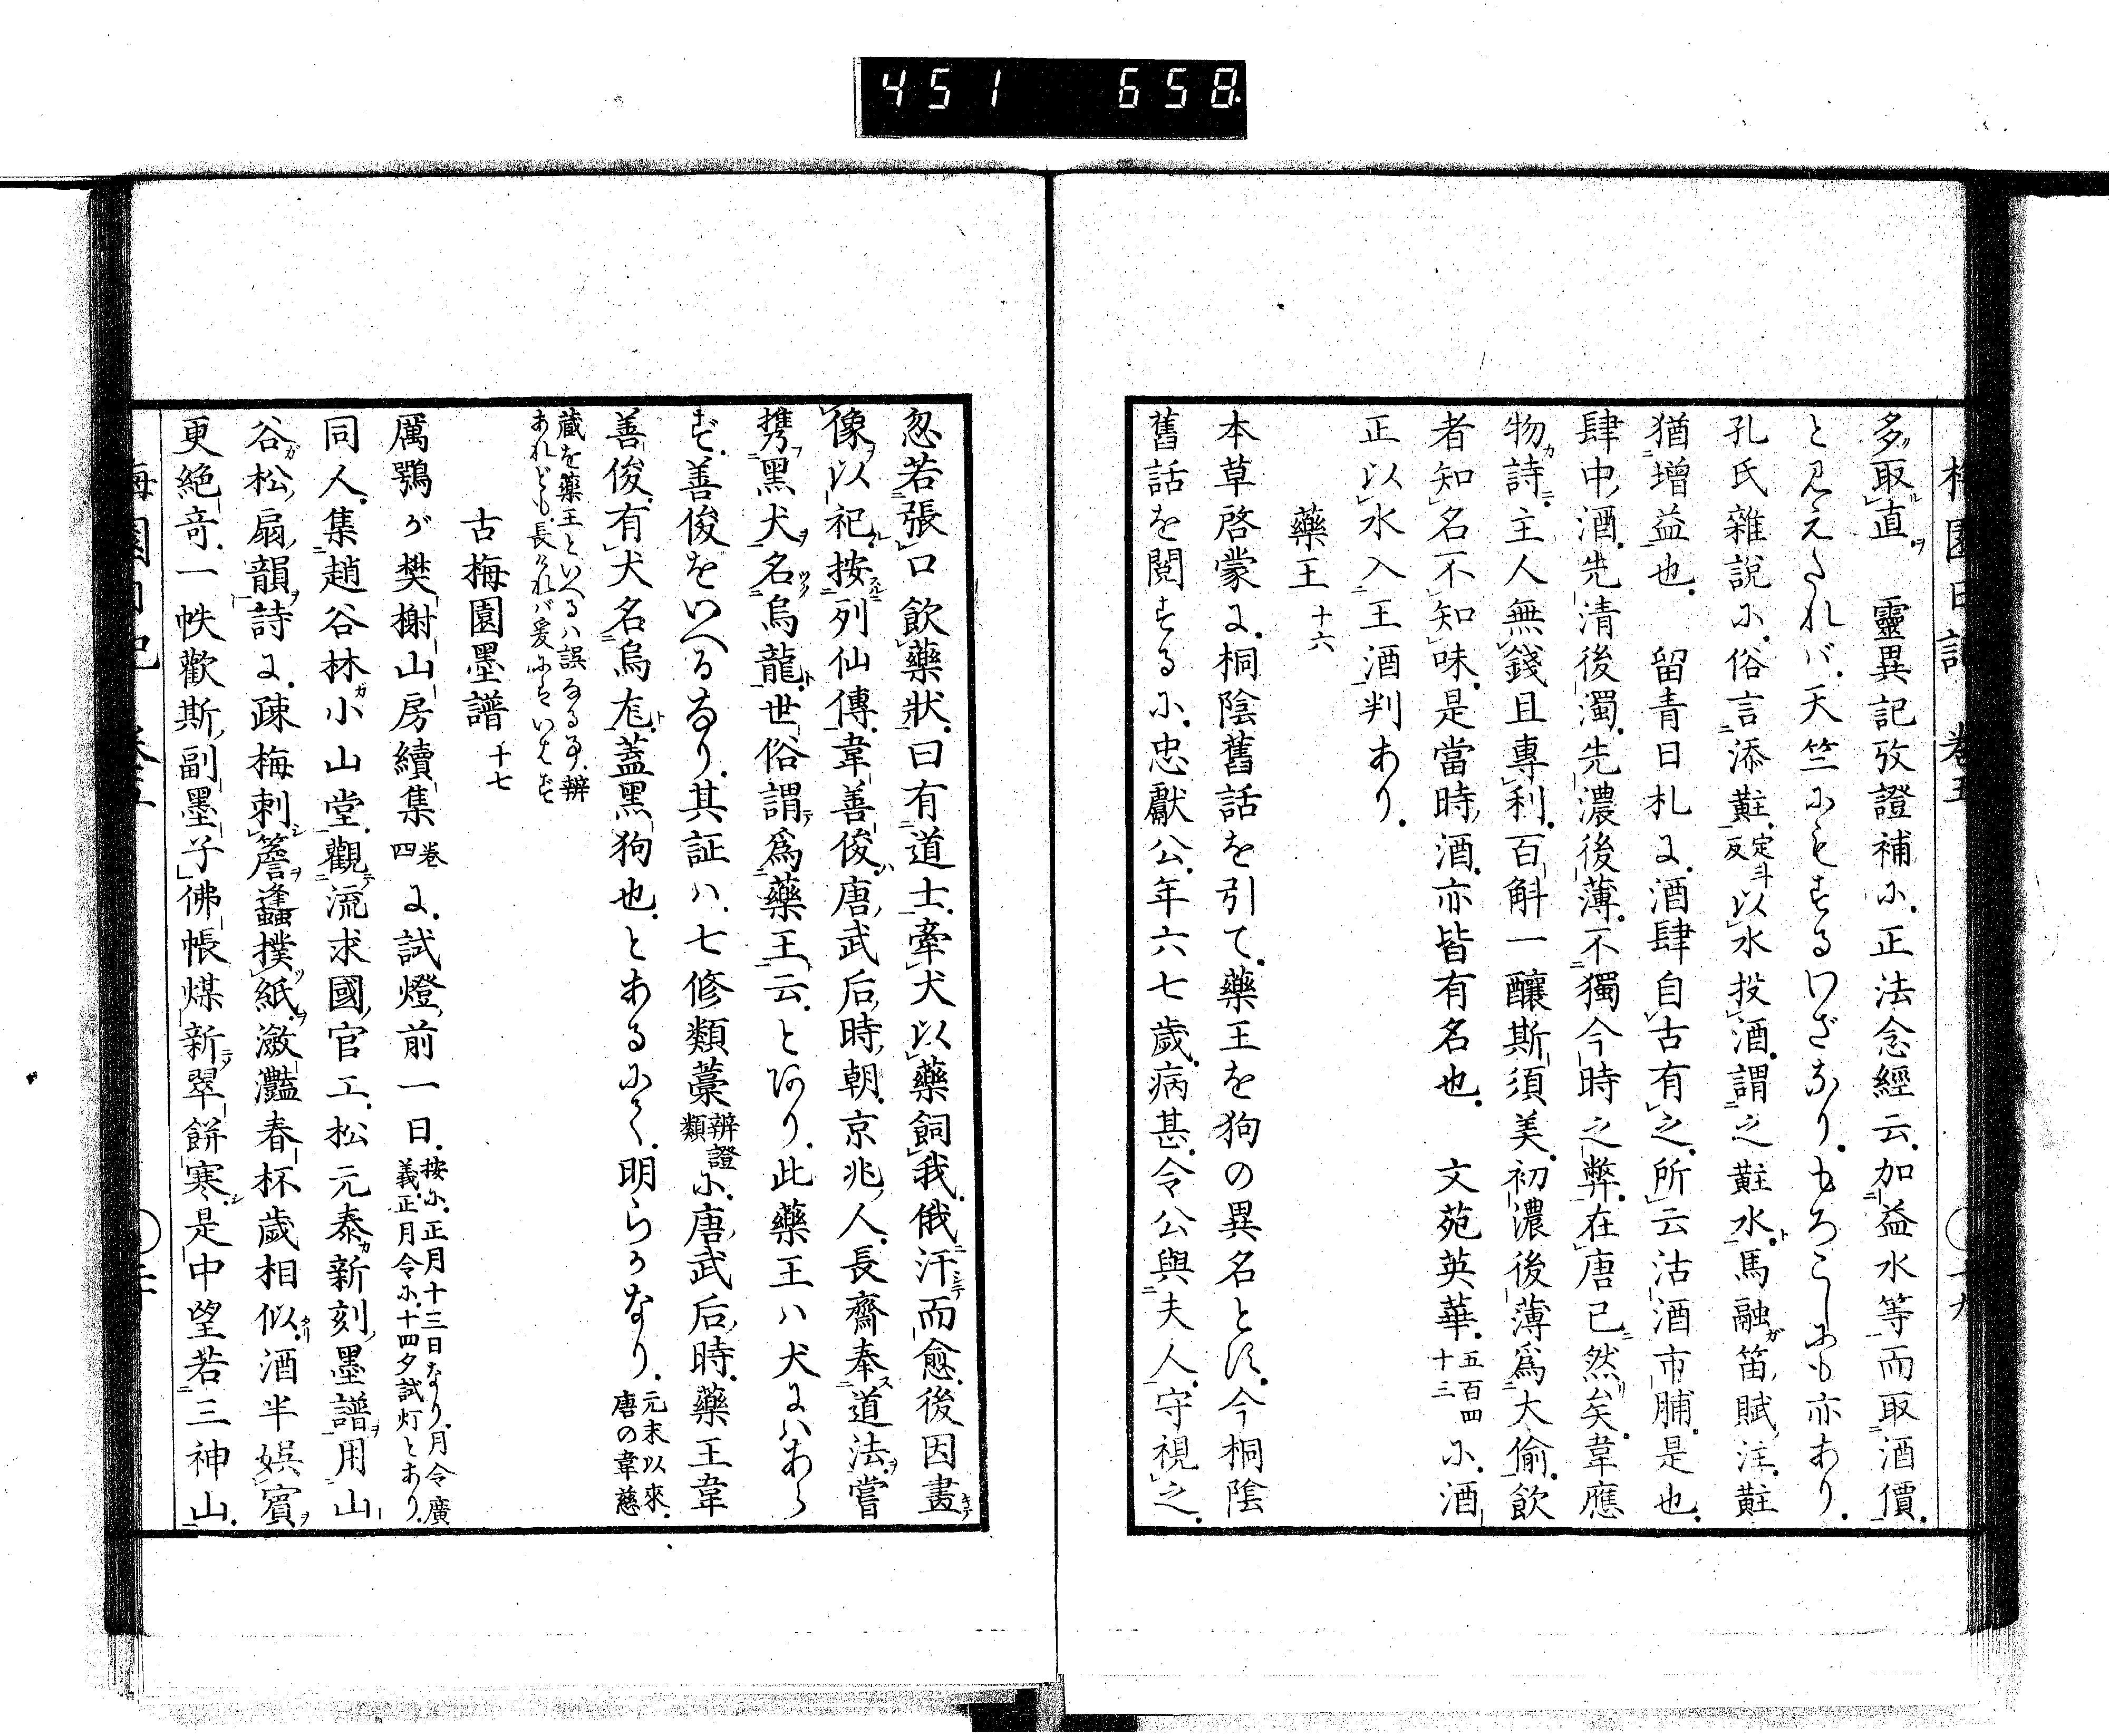 451 658
梅園日記 卷五 〇十九
多取直 靈異記攷證補に正法念經云加益水等而取酒價
と見えたれバ天竺にもするわざなり もろこしにも亦あり
孔氏雜說に俗言添黈定斗反以水投酒謂之黈水馬融笛賦注黈
猶增益也 留青日札に酒肆自古有之所云沽酒市脯是也
肆中酒先清後濁先濃後薄不獨今時之弊在唐已然矣韋應
物詩主人無錢且專利百斛一釀斯須美初濃後薄爲大偷飲
者知名不知味是當時酒亦皆有名也 文苑英華五百四十三に酒
正以水入王酒判あり
藥王 十六
本草啓蒙に桐陰舊話を引て藥王を狗の異名とす今桐陰
舊話を閱するに忠獻公年六七歲病甚令公與夫人守視之
忽若張口飲藥狀曰有道士牽犬以藥飼我俄汗而愈後因畫
像以祀按列仙傳韋善俊唐武后時朝京兆人長齋奉道法嘗
攜黑犬名烏龍世俗謂爲藥王云とあり此藥王ハ犬にハあら
ず善俊をいへるなり其証ハ七修類藁辨證類に唐武后時藥王韋
善俊有犬名烏尨蓋黑狗也とあるにて明らかなり元末以來唐の韋慈
藏を藥王といへるハ誤なる事辨
あれども長けれバ爰にもいはず
古梅園墨譜 十七
厲鶚が樊榭山房續集卷四に試燈前一日按に正月十三日なり月令廣義正月令に十四夕試灯とあり
同人集趙谷林小山堂觀流求國官工松元泰新刻墨譜用山
谷松扇韻詩に疎梅刺簷逢蠭撲紙瀲灩春杯歲相似酒半娯賓
更絶奇一帙歡斯副墨子佛帳煤新翠餅寒是中望若三神山
梅園日記 卷五 〇二十